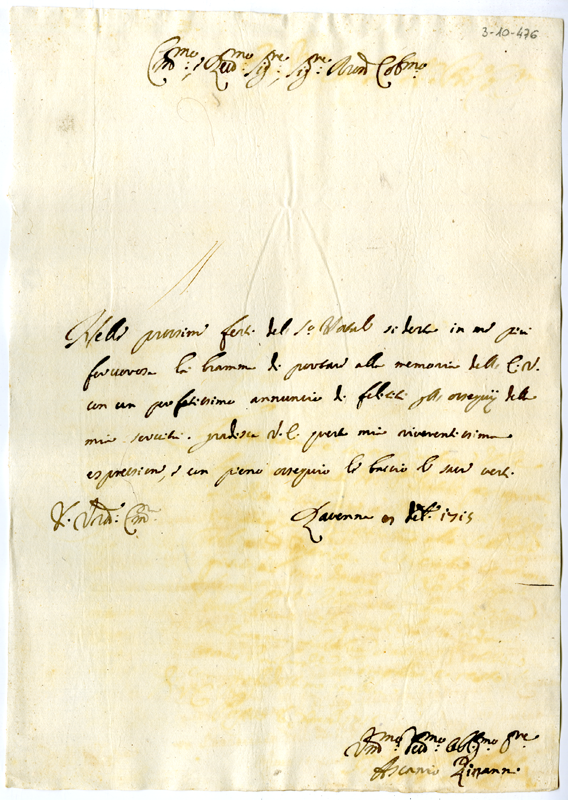 3-10-476
Em.mo, e Reu.mo Sig.re, Sig.re Pron Col.mo
Nelle prossime feste del S.o Natale si desta in me più
feruorosa la bramma di portare alla memoria della E.V.
con un perfetissimo annuncio di felicità gli ossequij della
mia seruitù. gradisca V.E. queste mie riuerentissime
espressioni, e con pieno ossequio le baccio le sacre vesti.
Di V. Em.za Rauenna Xbre 1715
Vm.mo Deu.mo Obl.mo Sre
Ascanio